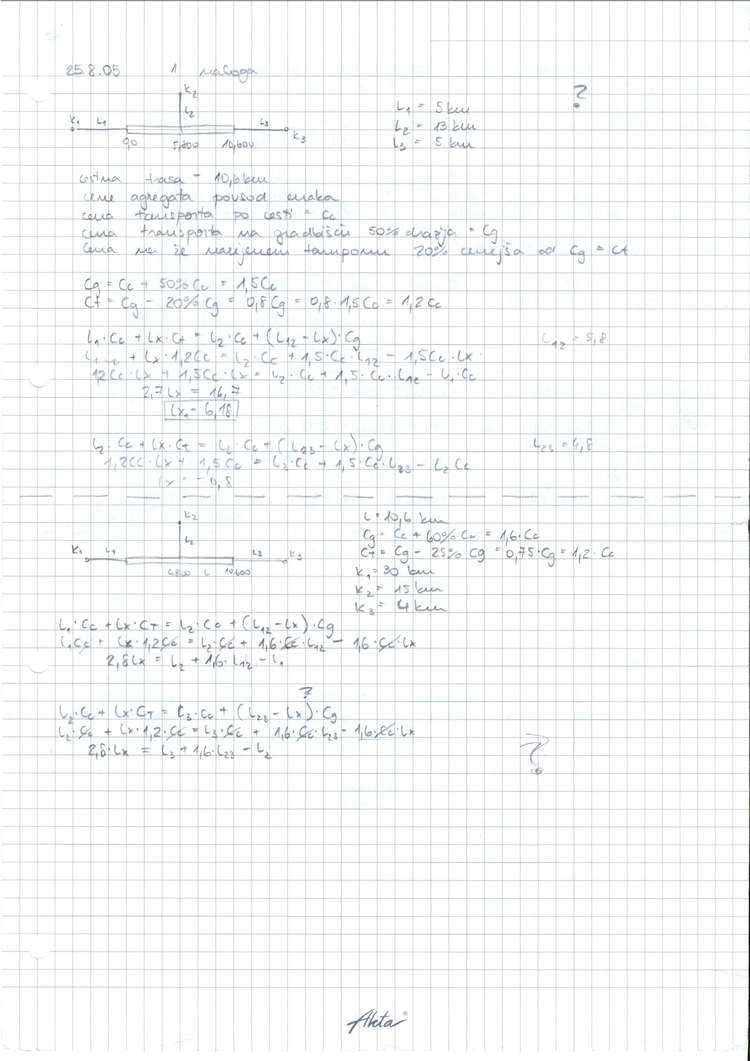 25.8.05 1 naloga
?
K2
K1 L1 L2 L3 K3
0,0 5,800 10,600
L1 = 5 km
L2 = 13 km
L3 = 5 km
cestna trasa - 10,6 km
cene agregata povsod enaka
cena transporta po cesti = Cc
cena transporta na gradbišče 50% dražja = Cg
Cena na že narejenem tamponu 20% cenejša od Cg = Ct
Cg = Cc + 50% Cc = 1,5Cc
Ct = Cg - 20% Cg = 0,8Cg = 0,8·1,5Cc = 1,2Cc
L1·Cc + Lx·Ct = L2·Cc + (L12 - Lx)·Cg L12 = 5,8
Lx·1,2Cc = L2·Cc + 1,5·Cc·L12 - 1,5Cc·Lx
1,2Cc·Lx + 1,5Cc·Lx = L2·Cc + 1,5·Cc·L12 - L1·Cc
2,7Lx = 16,7
Lx = 6,18
L2·Cc + Lx·Ct = L3·Cc + (L23 - Lx)·Cg L23 = 4,8
1,2Cc·Lx + 1,5Cc = L3·Cc + 1,5·Cc·L23 - L2 Cc
Lx = -0,8
K2
K1 L1 L2 L3 K3
5800 L 10,600
L = 10,6 km
Cg = Cc + 60% Cc = 1,6·Cc
Ct = Cg - 25% Cg = 0,75·Cg = 1,2·Cc
K1 = 30 km
K2 = 15 km
K3 = 4 km
L1·Cc + Lx·CT = L2·Cc + (L12 - Lx)·Cg
L1·Cc + Lx·1,2Cc = L2·Cc + 1,6·Cc·L12 - 1,6·Cc·Lx
2,8Lx = L2 + 1,6·L12 - L1
?
L2·Cc + Lx·CT = L3·Cc + (L23 - Lx)·Cg
L2·Cc + Lx·1,2·Cc = L3·Cc + 1,6·Cc·L23 - 1,6·Cc·Lx
2,8·Lx = L3 + 1,6·L23 - L2
?
Akta